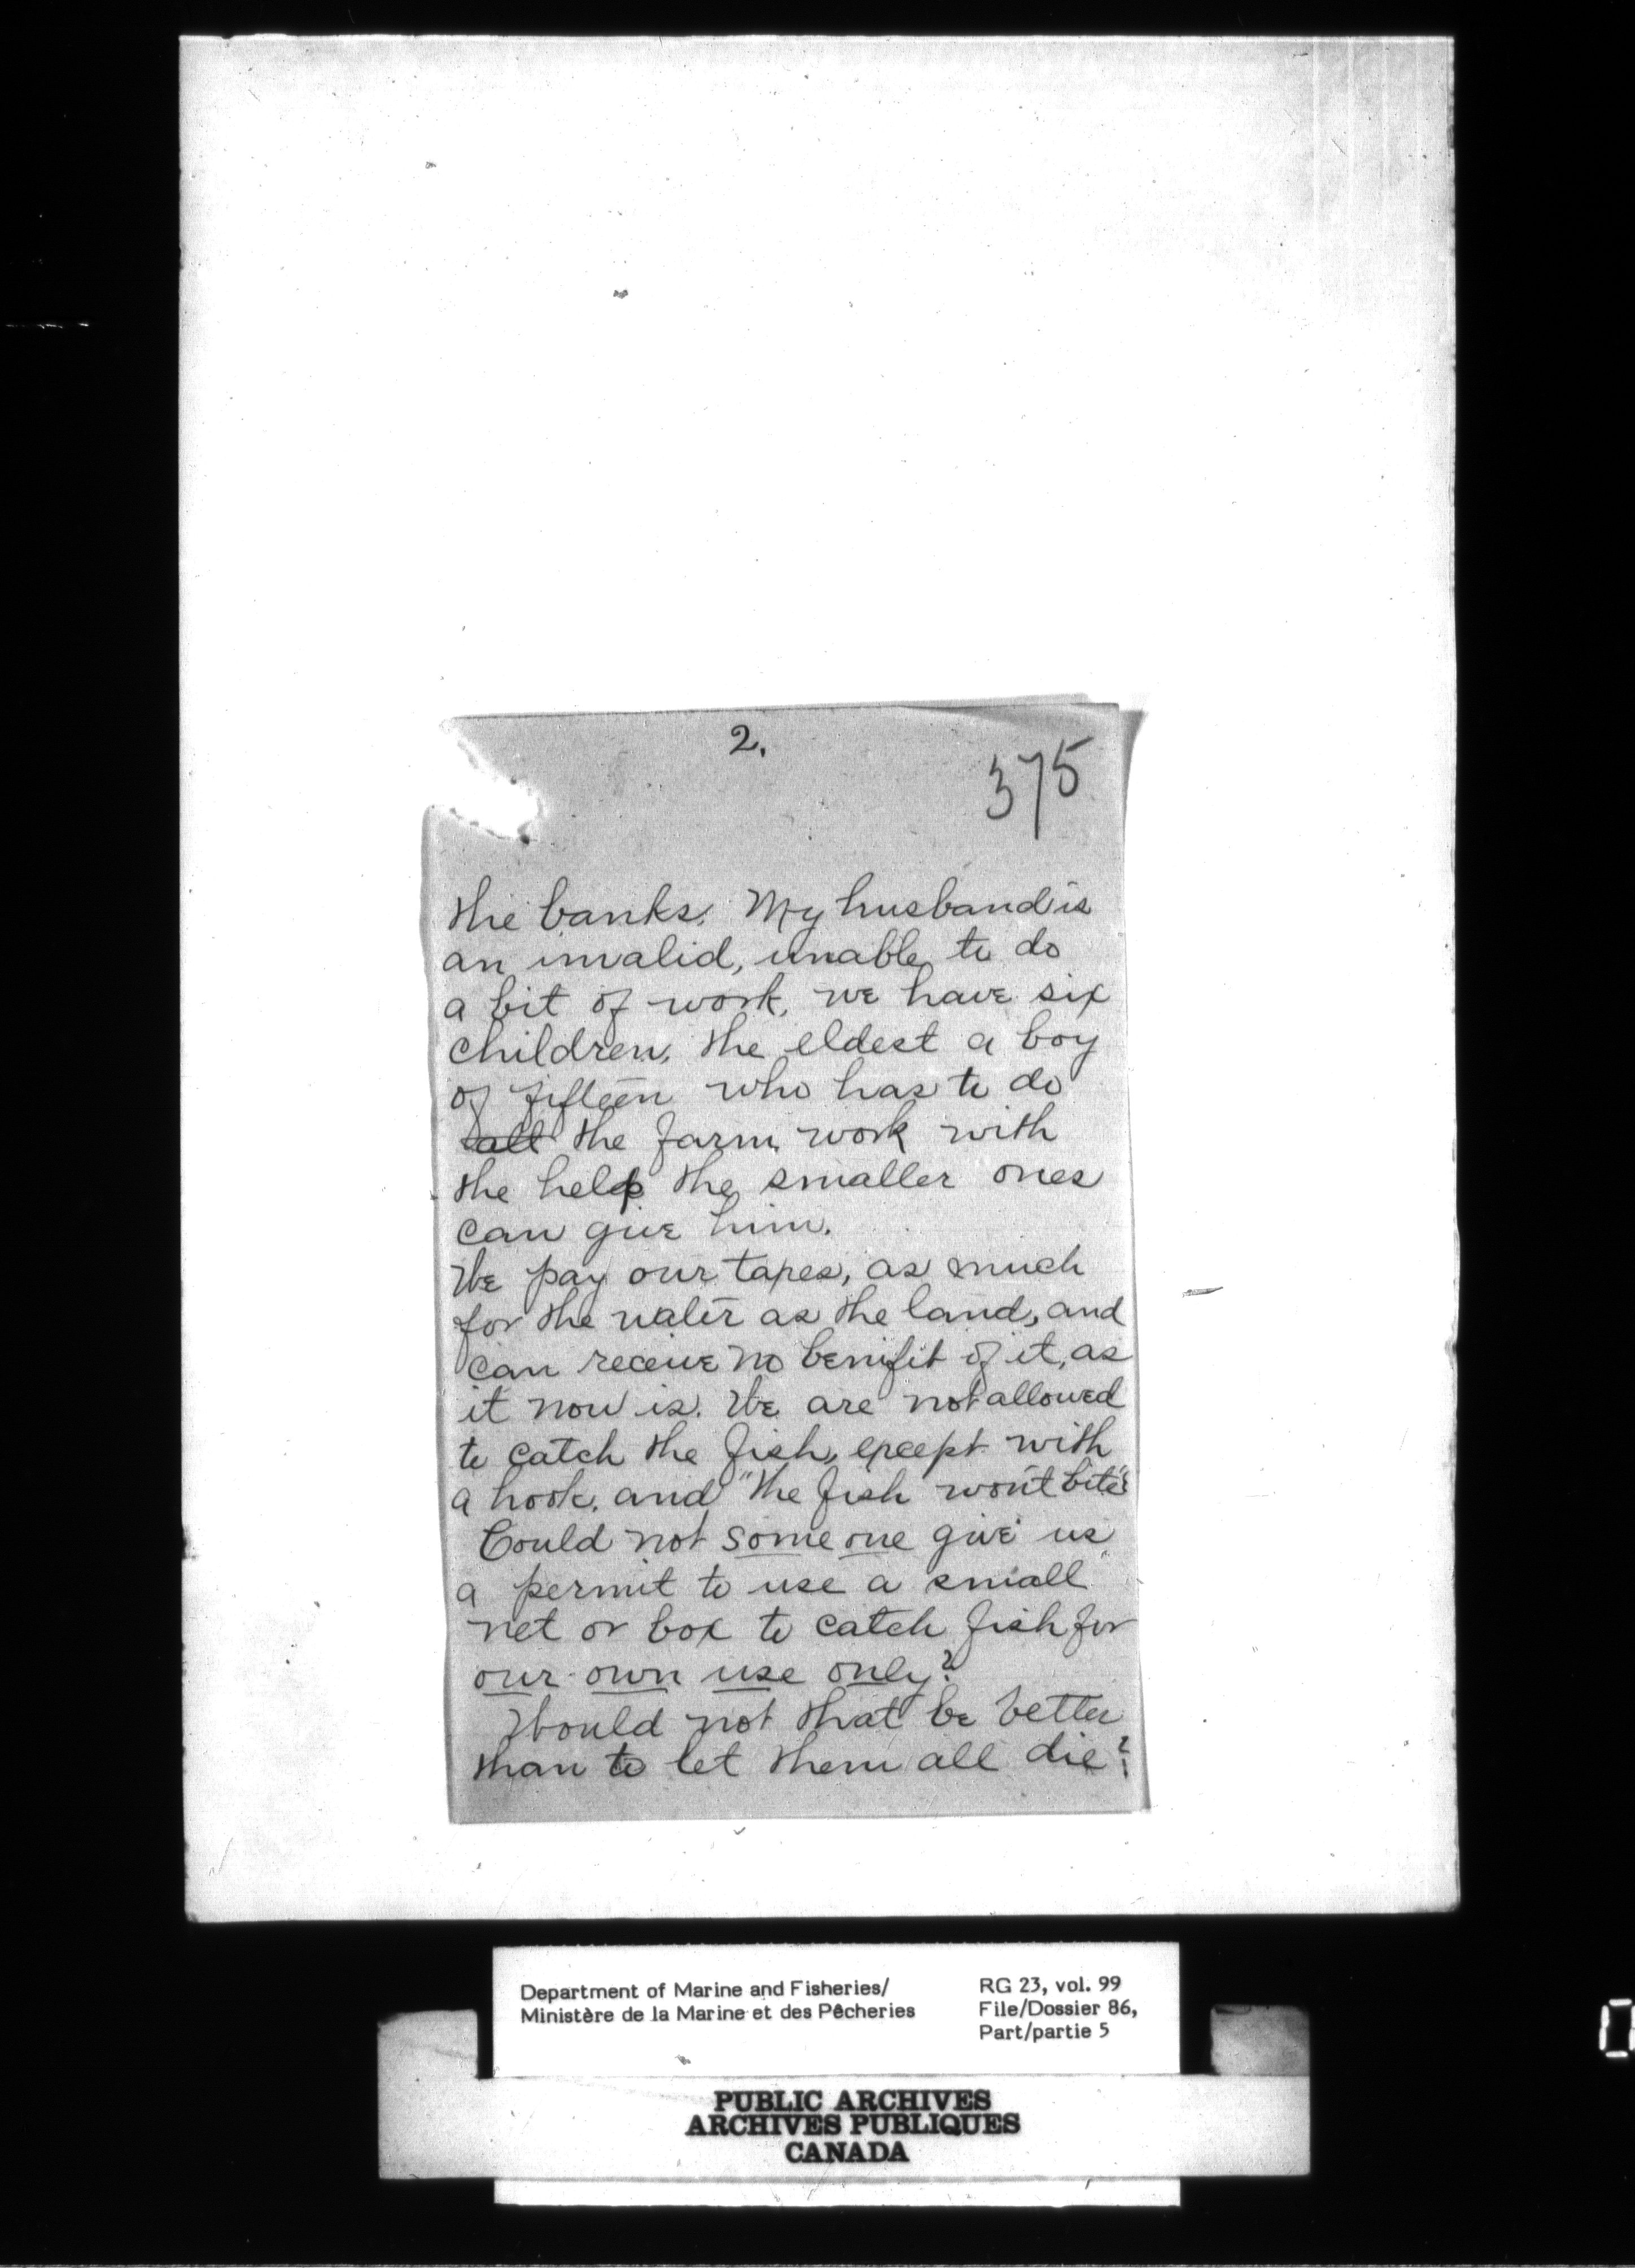 2.
375
the banks. My husband is
an invalid, unable to do
a bit of work, we have six
children, the eldest a boy
of fifteen who has to do
all the farm work with
the help the smaller ones
can give him.
We pay our taxes, as much
for the water as the land, and
can receive no benifit of it, as
it now is. We are not allowed
to catch the fish, except with
a hook, and "the fish won't bite"
Could not some one give us
a permit to use a small
net or box to catch fish for
our own use only?
Would not that be better
than to let them all die?
Department of Marine and Fisheries/
Ministère de la Marine et des Pêcheries
RG 23, vol. 99
File/Dossier 86,
Part/partie 5
PUBLIC ARCHIVES
ARCHIVES PUBLIQUES
CANADA